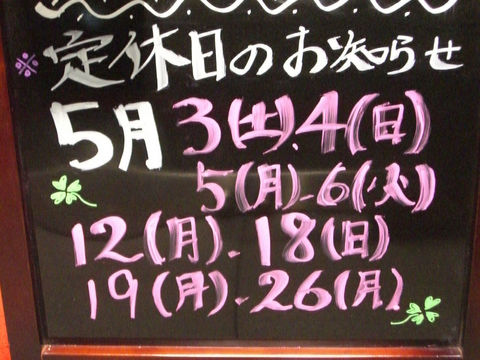 ※定休日のお知らせ
5月 3(土).4(日)
5(月)-6(火)
12(月)-18(日)
19(月)-26(月)